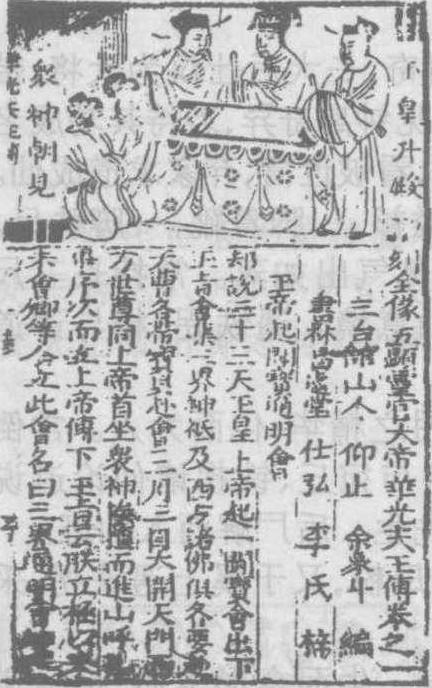 玉皇升殿
衆神朝見
刻全像五顯靈官大帝華光天王傳卷之一
三台館山人 仰止 余象斗 編
書林昌遠堂 仕弘 李氏 梓
玉帝起鬬寶通明會
却說三十三天玉皇上帝起一鬬寶會出下
玉旨會集三界神祇及西方諸佛俱各要
天曹各帶寶貝赴會三月三日大開天門
方世尊同上帝首坐衆神隨而進山呼
依序次而立上帝傳下玉旨云朕立極以
未會卿等今立此會名曰三界通明會